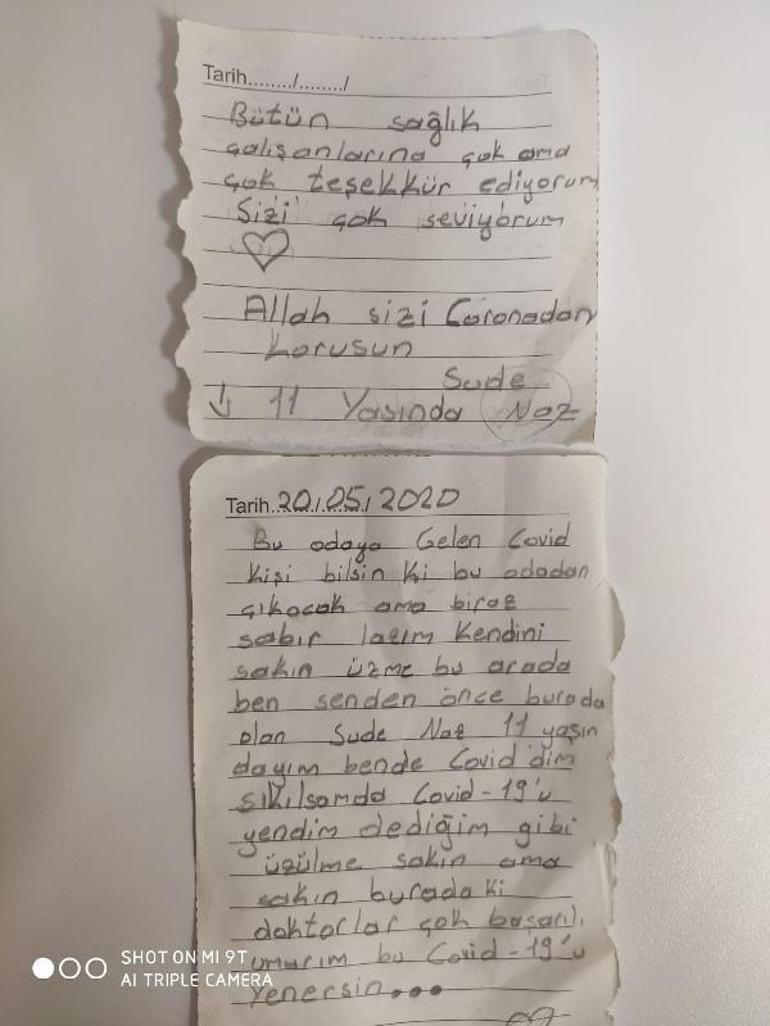 Tarih......../......../
Bütün sağlık
çalışanlarına çok ama
çok teşekkür ediyorum
Sizi çok seviyorum
Allah sizi Coronadan
korusun
Sude
↓ 11 Yaşında Naz
Tarih 20/05/2020
Bu odaya Gelen Covid
kişi bilsin ki bu odadan
çıkacak ama biraz
sabır lazım Kendini
sakın üzme bu arada
ben senden önce burada
olan Sude Naz 11 yaşın
dayım bende Covid'dim
sıkılsamda Covid-19'u
yendim dediğim gibi
üzülme sakın ama
sakın burada ki
doktorlar çok başarılı
umarım bu Covid-19'u
Yenersin...
SHOT ON MI 9T
AI TRIPLE CAMERA